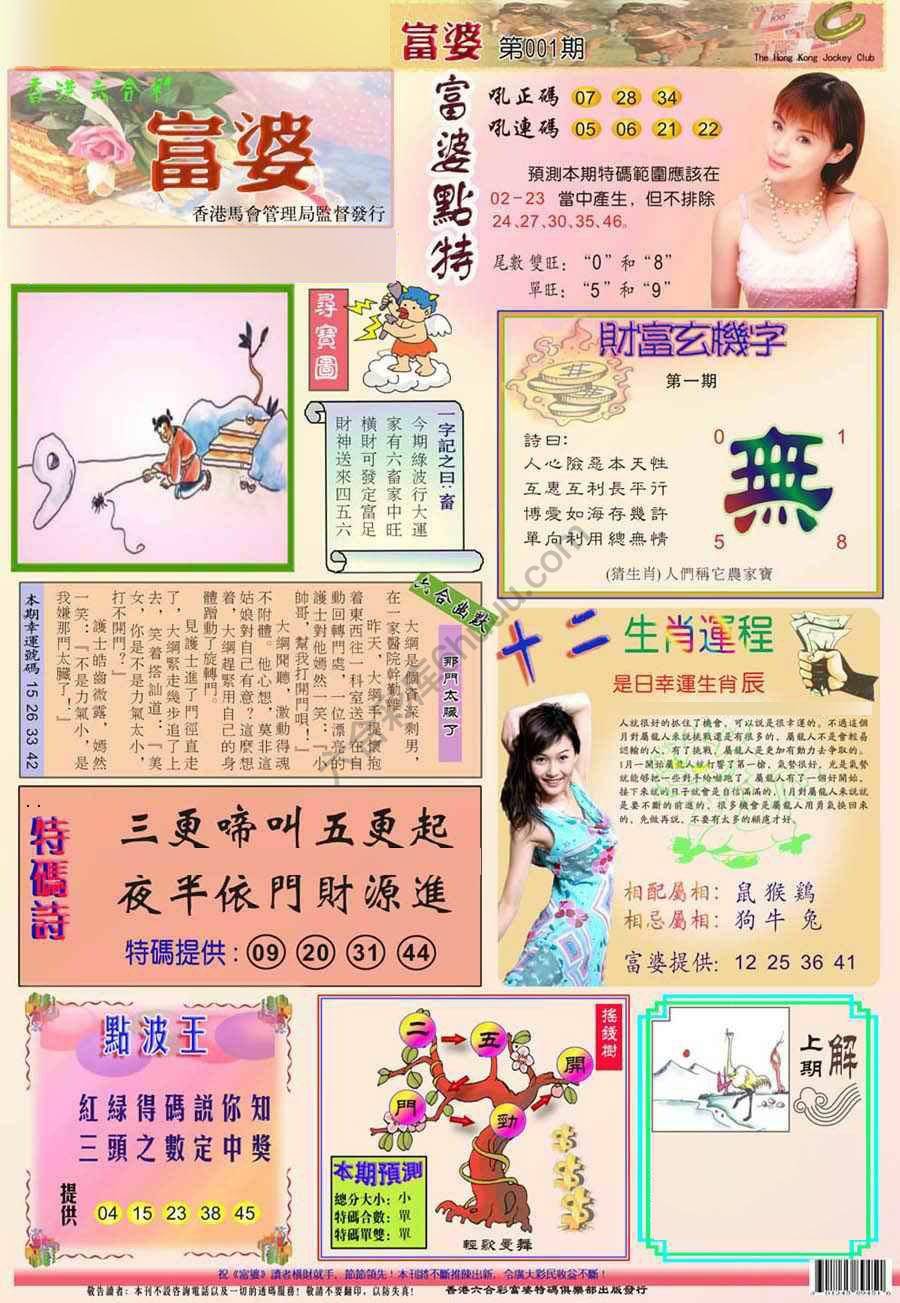 富婆 第001期
The Hong Kong Jockey Club
香港六合彩
富婆
香港馬會管理局監督發行
富婆點特
吼正碼 07 28 34
吼連碼 05 06 21 22
預測本期特碼範圍應該在
02-23 當中產生，但不排除
24、27、30、35、46。
尾數雙旺：“0”和“8”
單旺：“5”和“9”
尋寶圖
一字記之曰：畜
今期綠波行大運
家有六畜家中旺
橫財可發定富足
財神送來四五六
財富玄機字
第一期
詩曰：
人心險惡本天性
互惠互利長平行
博愛如海存幾許
單向利用總無情
0 1
無
5 8
(猜生肖)人們稱它農家寶
六合幽默
那門太賤了
大綱是個資深剩男，
在一家醫院幹勤雜。
昨天，大綱手提懷抱
着東西往一科室送，在自
動回轉門處，一位漂亮的
護士對他嫣然一笑：『小
帥哥，幫我打開門唄！』
大綱聞聽，激動得魂
不附體。他心想，莫非這
姑娘對自己有意？這麼想
着，大綱趕緊用自己的身
體蹭動了旋轉門。
見護士進了門徑直走
了，大綱緊走幾步追了上
去，笑着搭訕道：『美
女，你是不是力氣太小，
打不開門？』
護士皓齒微露，嫣然
一笑：『不是力氣小，是
我嫌那門太臟了！』
本期幸運號碼 15 26 33 42
十二生肖運程
是日幸運生肖辰
人就很好的抓住了機會，可以說是很幸運的。不過這個
月對屬龍人來說挑戰還是有很多的，屬龍人不是會輕易
認輸的人，有了挑戰，屬龍人是更加有動力去爭取的。
1月一開始屬龍人就打響了第一槍，氣勢很好，光是氣勢
就能够把一些對手給嚇跑了。屬龍人有了一個好開始，
接下來就的日子就會是自信滿滿的，1月對屬龍人來說就
是要不斷的前進的，很多機會是屬龍人用勇氣換回來
的，先做再說，不要有太多的顧慮才好。
相配屬相：鼠 猴 鷄
相忌屬相：狗 牛 兔
富婆提供：12 25 36 41
特碼詩
三更啼叫五更起
夜半依門財源進
特碼提供：09 20 31 44
點波王
紅緑得碼説你知
三頭之數定中獎
提供 04 15 23 38 45
搖錢樹
二 五 開
門 勁
本期預測
總分大小：小
特碼合數：單
特碼單雙：單
輕歌曼舞
上期解
祝《富婆》讀者橫財就手，節節領先！本刊將不斷推陳出新，令廣大彩民收益不斷！
敬告讀者：本刊不設咨詢電話以及一切的透碼服務！敬請不要翻印，以防失真！
香港六合彩富婆特碼俱樂部出版發行